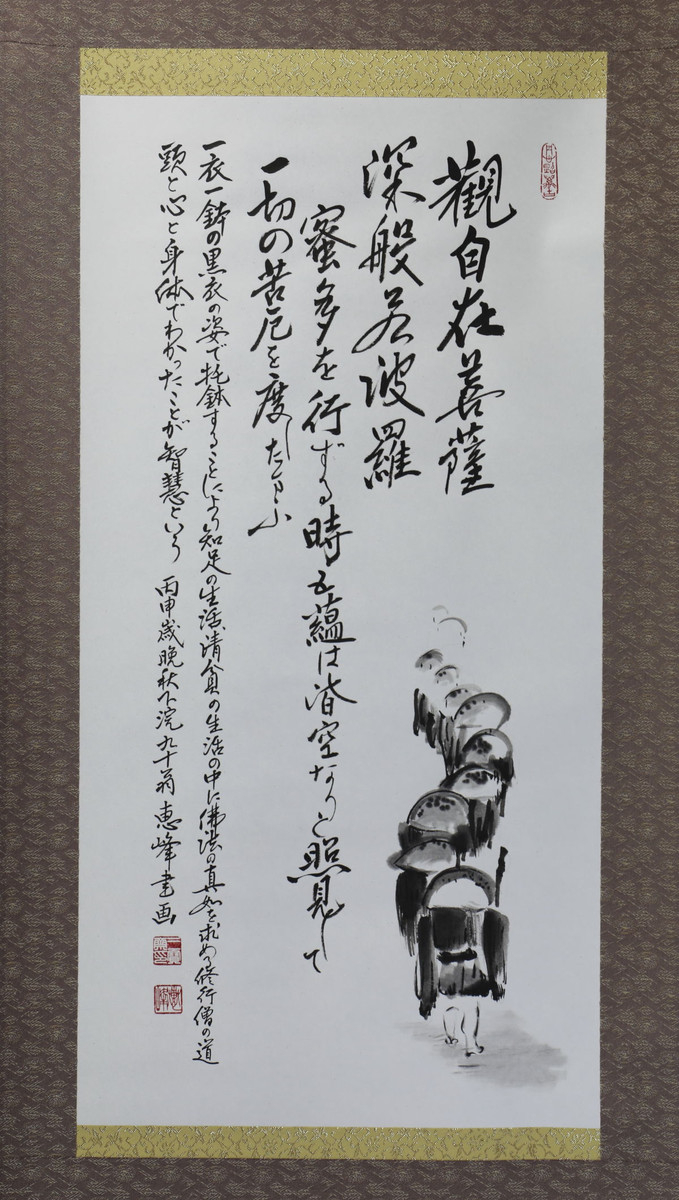 觀自在菩薩
深般若波羅
蜜多を行ずる時五蘊は皆空なりと照見して
一切の苦厄を度したまふ
一衣一鉢の黒衣の姿で托鉢することにより知足の生活、清貧の生活の中に佛法の真如を求める修行僧の道
頭と心と身体でわかったことが智慧という 丙申歳晩秋下浣 九十翁 恵峰書画